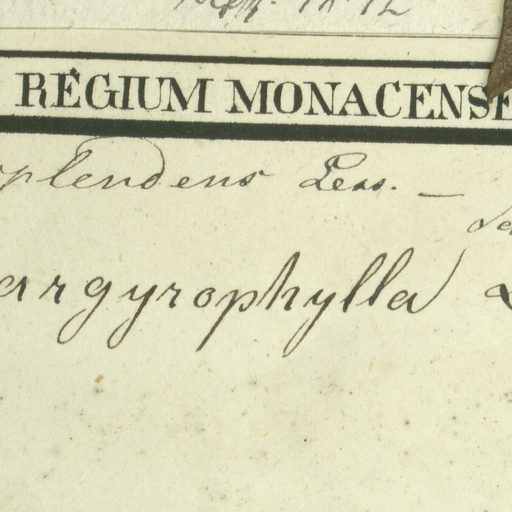 RÉGIUM MONACENSE
splendens Less. —
argyrophylla